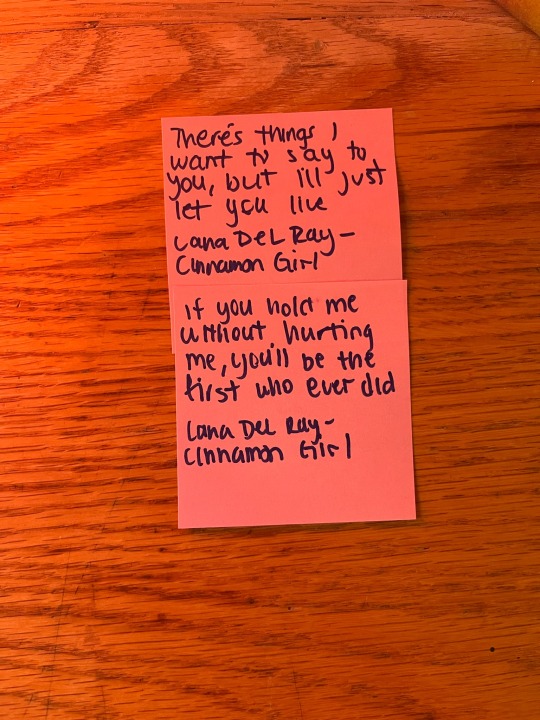 There's things I
want to say to
you, but i'll just
let you live
Lana Del Ray-
Cinnamon Girl
if you hold me
without hurting
me, you'll be the
first who ever did
Lana Del Ray-
Cinnamon Girl